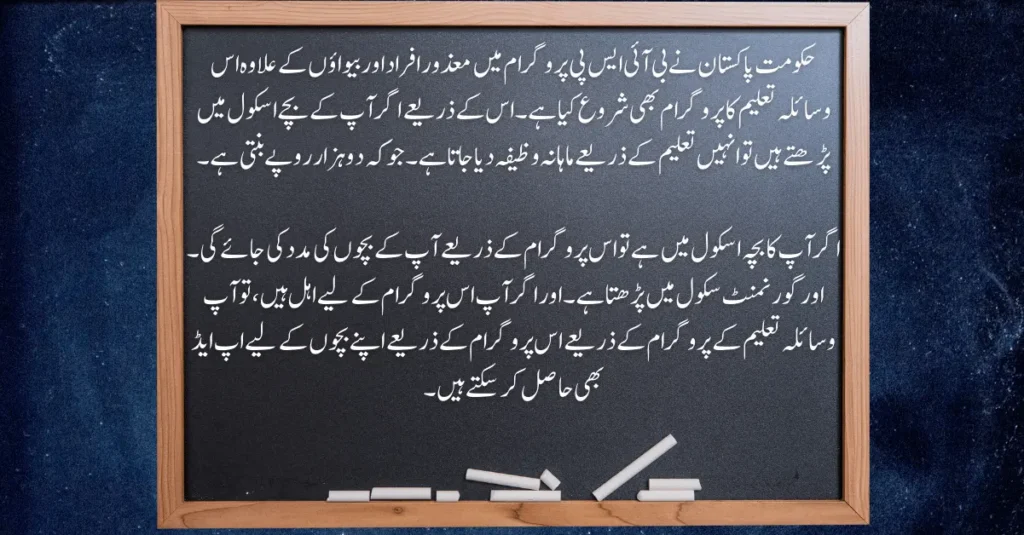 حکومت پاکستان نے بی آئی ایس پی پروگرام میں معذور افراد اور بیواؤں کے علاوہ اس
وسائلہ تعلیم کا پروگرام بھی شروع کیا ہے۔ اس کے ذریعے اگر آپ کے بچے اسکول میں
پڑھتے ہیں تو انہیں تعلیم کے ذریعے ماہانہ وظیفہ دیا جاتا ہے۔ جو کہ دو ہزار روپے بنتی ہے۔
اگر آپ کا بچہ اسکول میں ہے تو اس پروگرام کے ذریعے آپ کے بچوں کی مدد کی جائے گی۔
اور گورنمنٹ سکول میں پڑھتا ہے۔ اور اگر آپ اس پروگرام کے لیے اہل ہیں، تو آپ
وسائلہ تعلیم کے پروگرام کے ذریعے اس پروگرام کے ذریعے اپنے بچوں کے لیے اپ ایڈ
بھی حاصل کر سکتے ہیں۔